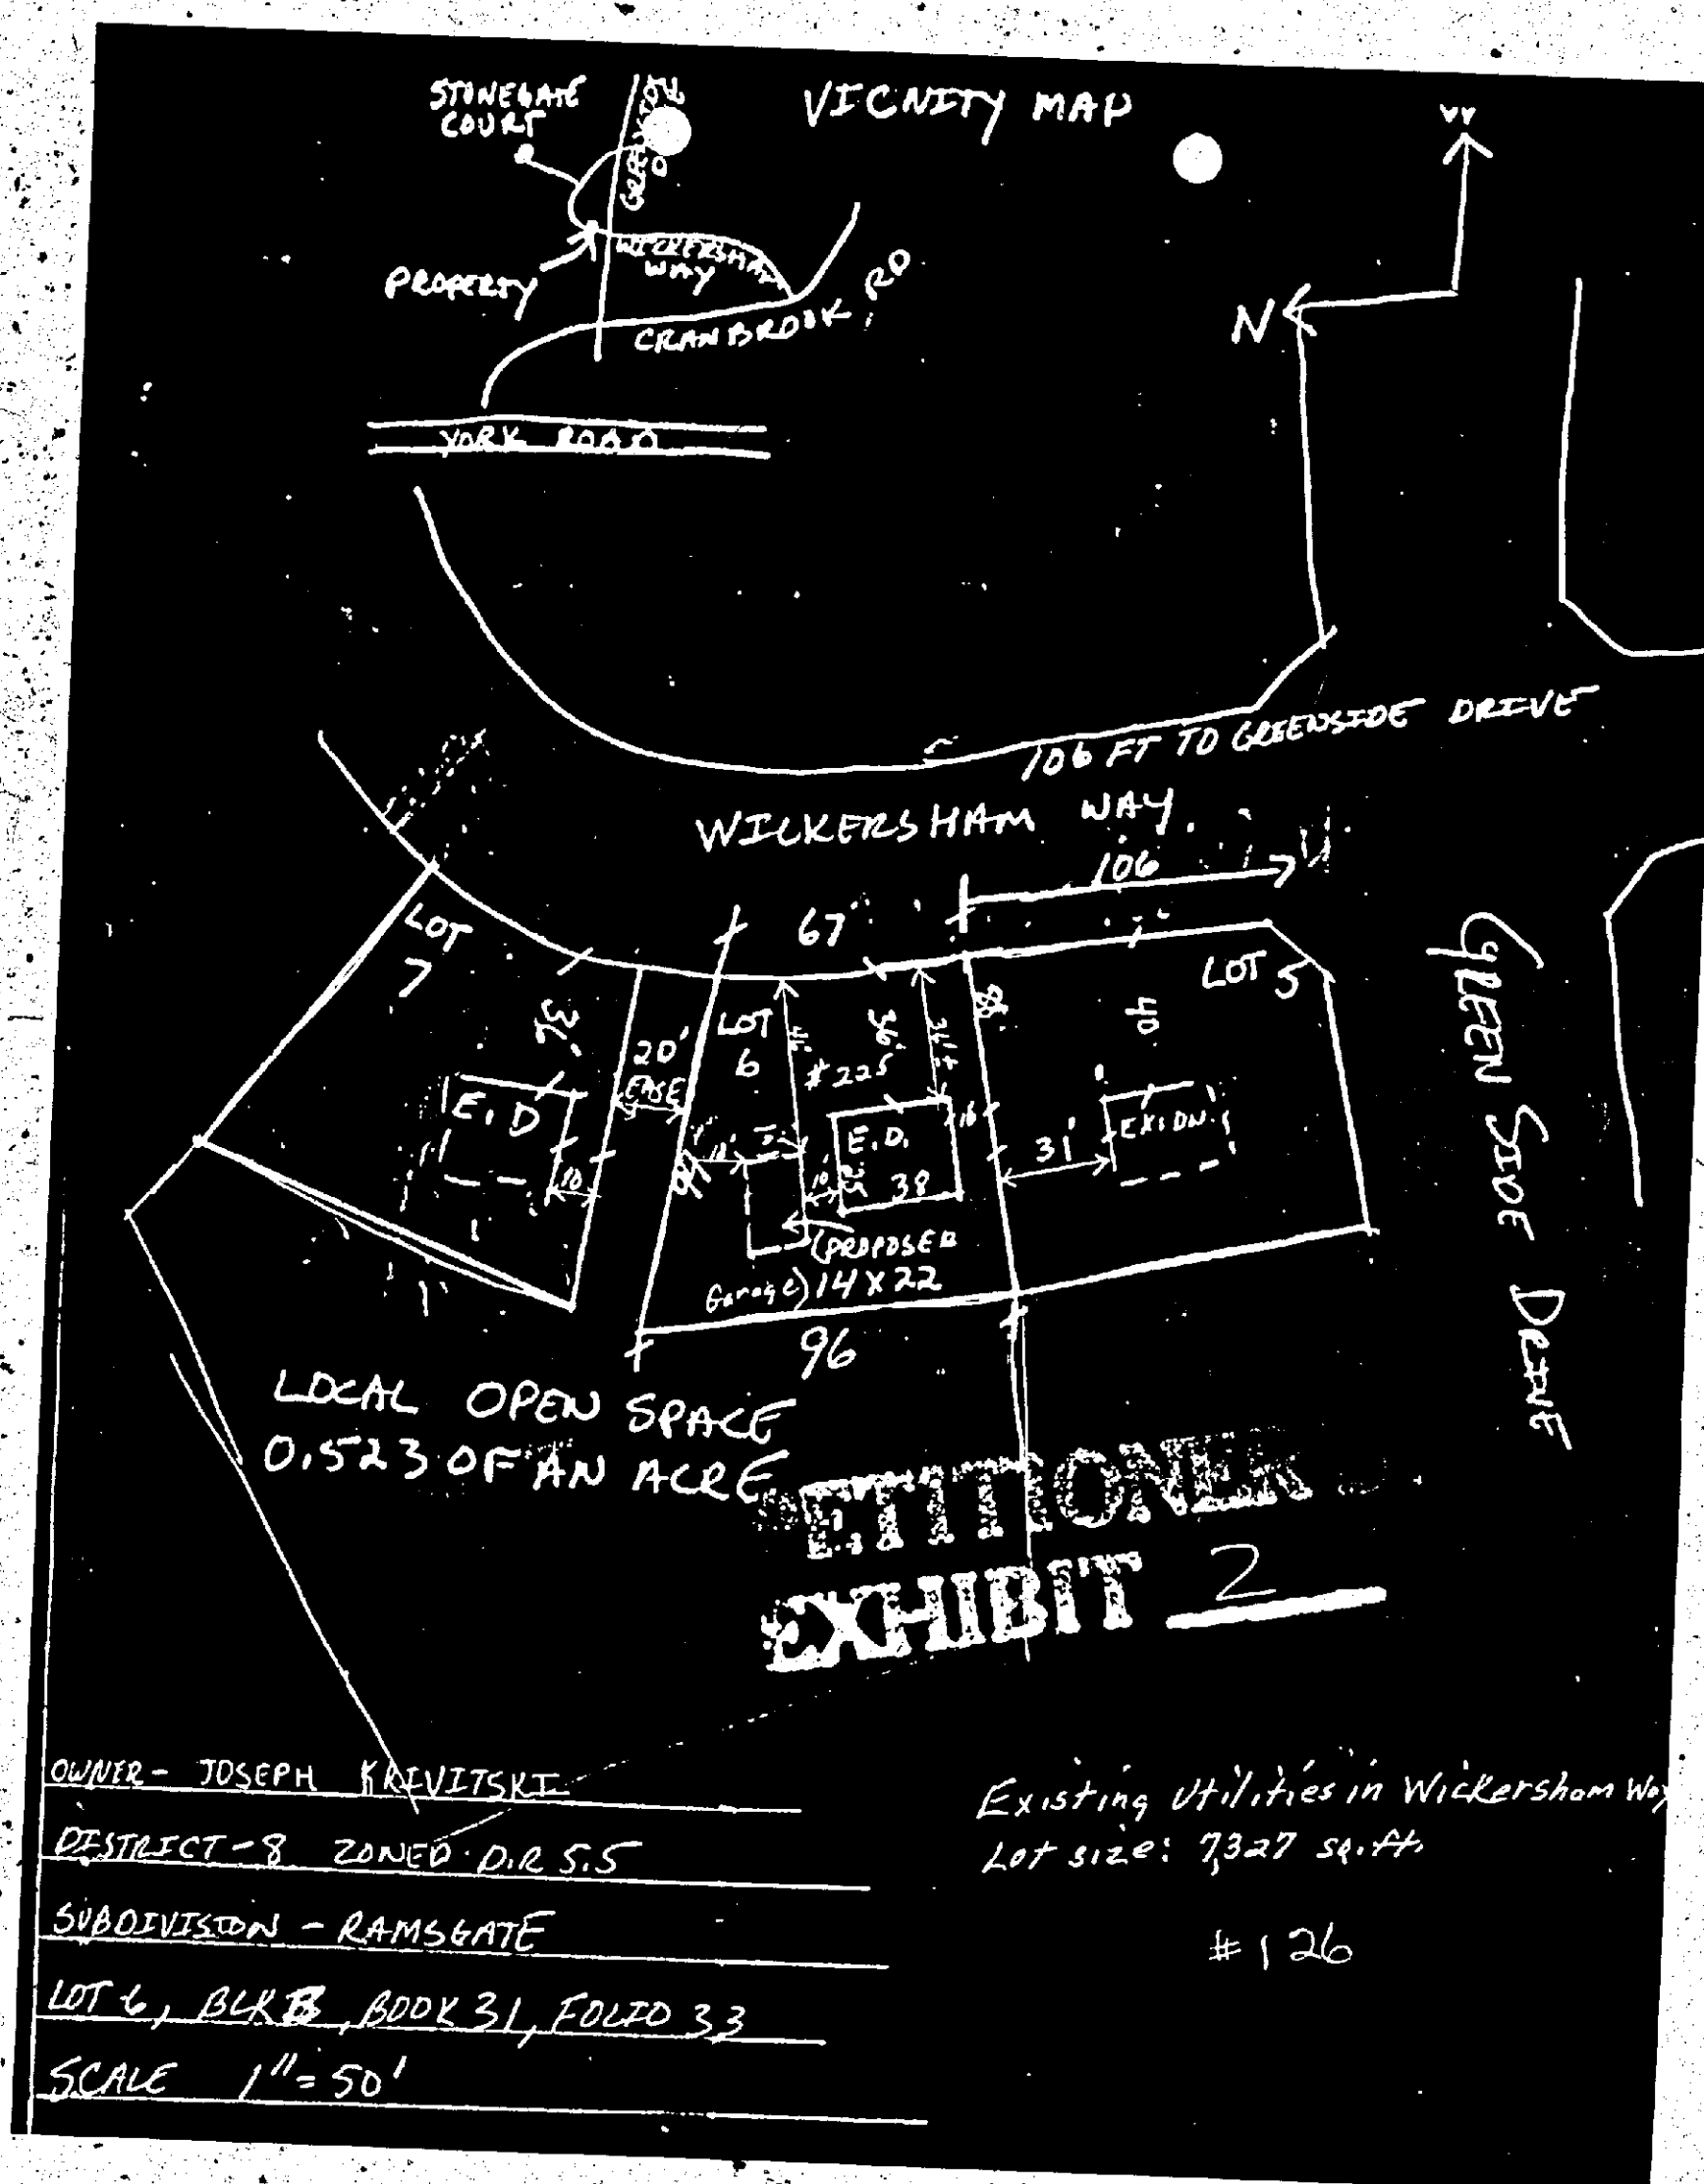 VICNITY MAP
STONEGATE
COURT
PROPERTY
WICKERSHAM
WAY
CRANBROOK RD.
YORK ROAD
W
N
106 FT TO GREENSIDE DRIVE
WICKERSHAM WAY
106
67'
LOT
7
36'
E.D
10
20'
EASE
LOT
6
#225
36'
E.D.
38
16
10'
(PROPOSED
Garage) 14 X 22
96
LOT 5
40
31'
EXI DW.
GREEN SIDE DRIVE
LOCAL OPEN SPACE
0.523 OF AN ACRE
PETITIONER'S
EXHIBIT 2
OWNER - JOSEPH KRIVITSKI
DISTRICT - 8 ZONED D.R 5.5
SUBDIVISION - RAMSGATE
LOT 6, BLK B, BOOK 31, FOLIO 33
SCALE 1" = 50'
Existing Utilities in Wickersham Way
Lot size: 7,327 sq.ft.
#126